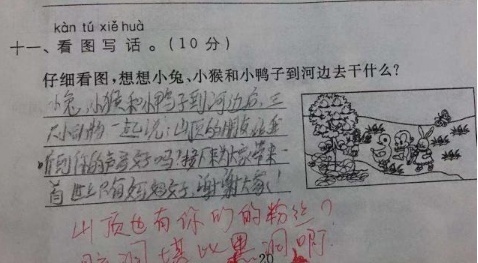 kàn tú xiě huà
十一、看图写话。(10分)
仔细看图,想想小兔、小猴和小鸭子到河边去干什么?
小兔、小猴和小鸭子到河边后,三
只小动物一起说:山顶的朋友你们
听到我的声音好吗?接下来为大家带来一
首世上只有妈妈好,谢谢大家!
山顶也有你们的粉丝?
脑洞堪比黑洞啊
20